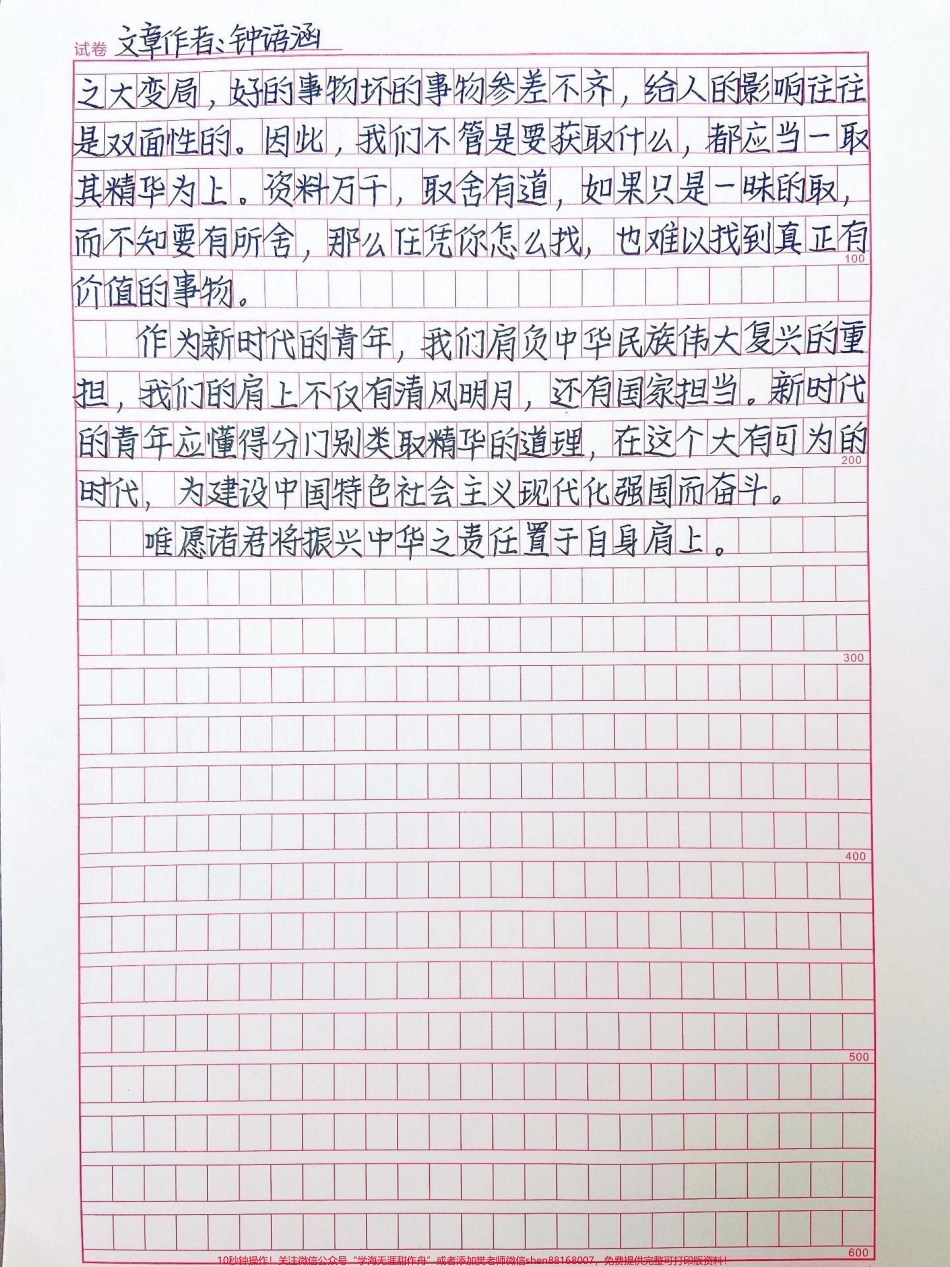 试卷 文章作者:钟语涵
之大变局，好的事物坏的事物参差不齐，给人的影响往往
是双面性的。因此，我们不管是要获取什么，都应当一取
其精华为上。资料万千，取舍有道，如果只是一昧的取，
而不知要有所舍，那么任凭你怎么找，也难以找到真正有
100
价值的事物。
作为新时代的青年，我们肩负中华民族伟大复兴的重
担，我们的肩上不仅有清风明月，还有国家担当。新时代
的青年应懂得分门别类取精华的道理，在这个大有可为的
200
时代，为建设中国特色社会主义现代化强国而奋斗。
唯愿诸君将振兴中华之责任置于自身肩上。
300
400
500
600
10秒钟操作！关注微信公众号“学海无涯甜作舟”或者添加樊老师微信shen88168007，免费提供完整可打印版资料！